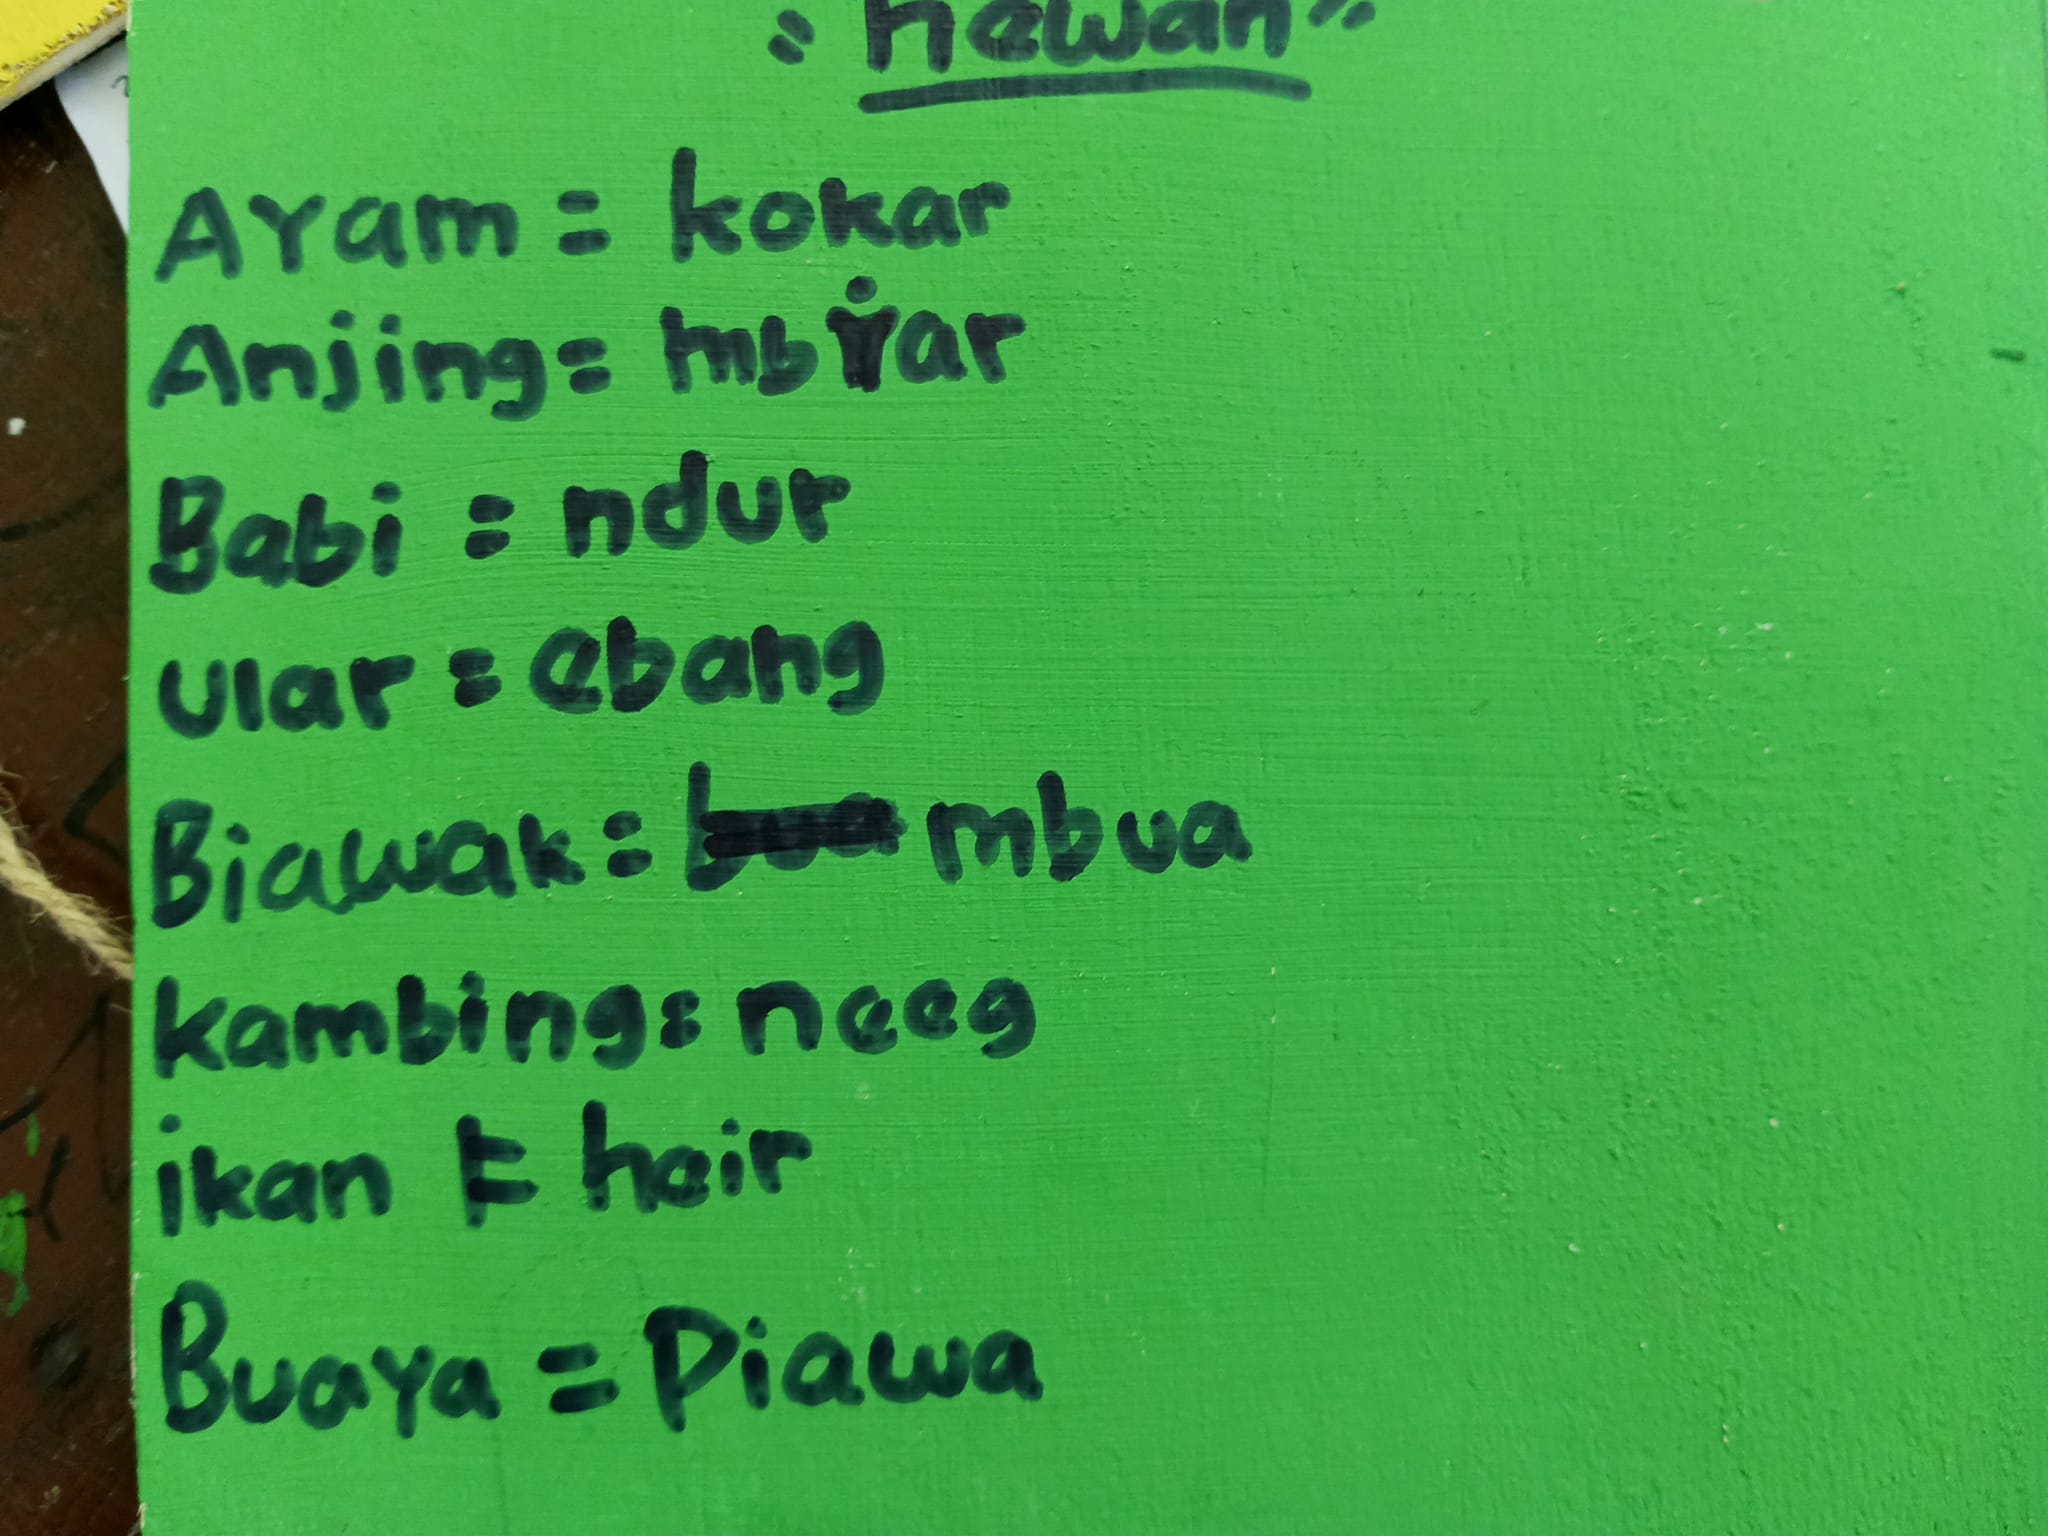 "hewan"
Ayam = kokar
Anjing = mbiar
Babi = ndur
ular = ebang
Biawak = mbua
kambing = neeg
ikan = heir
Buaya = Piawa